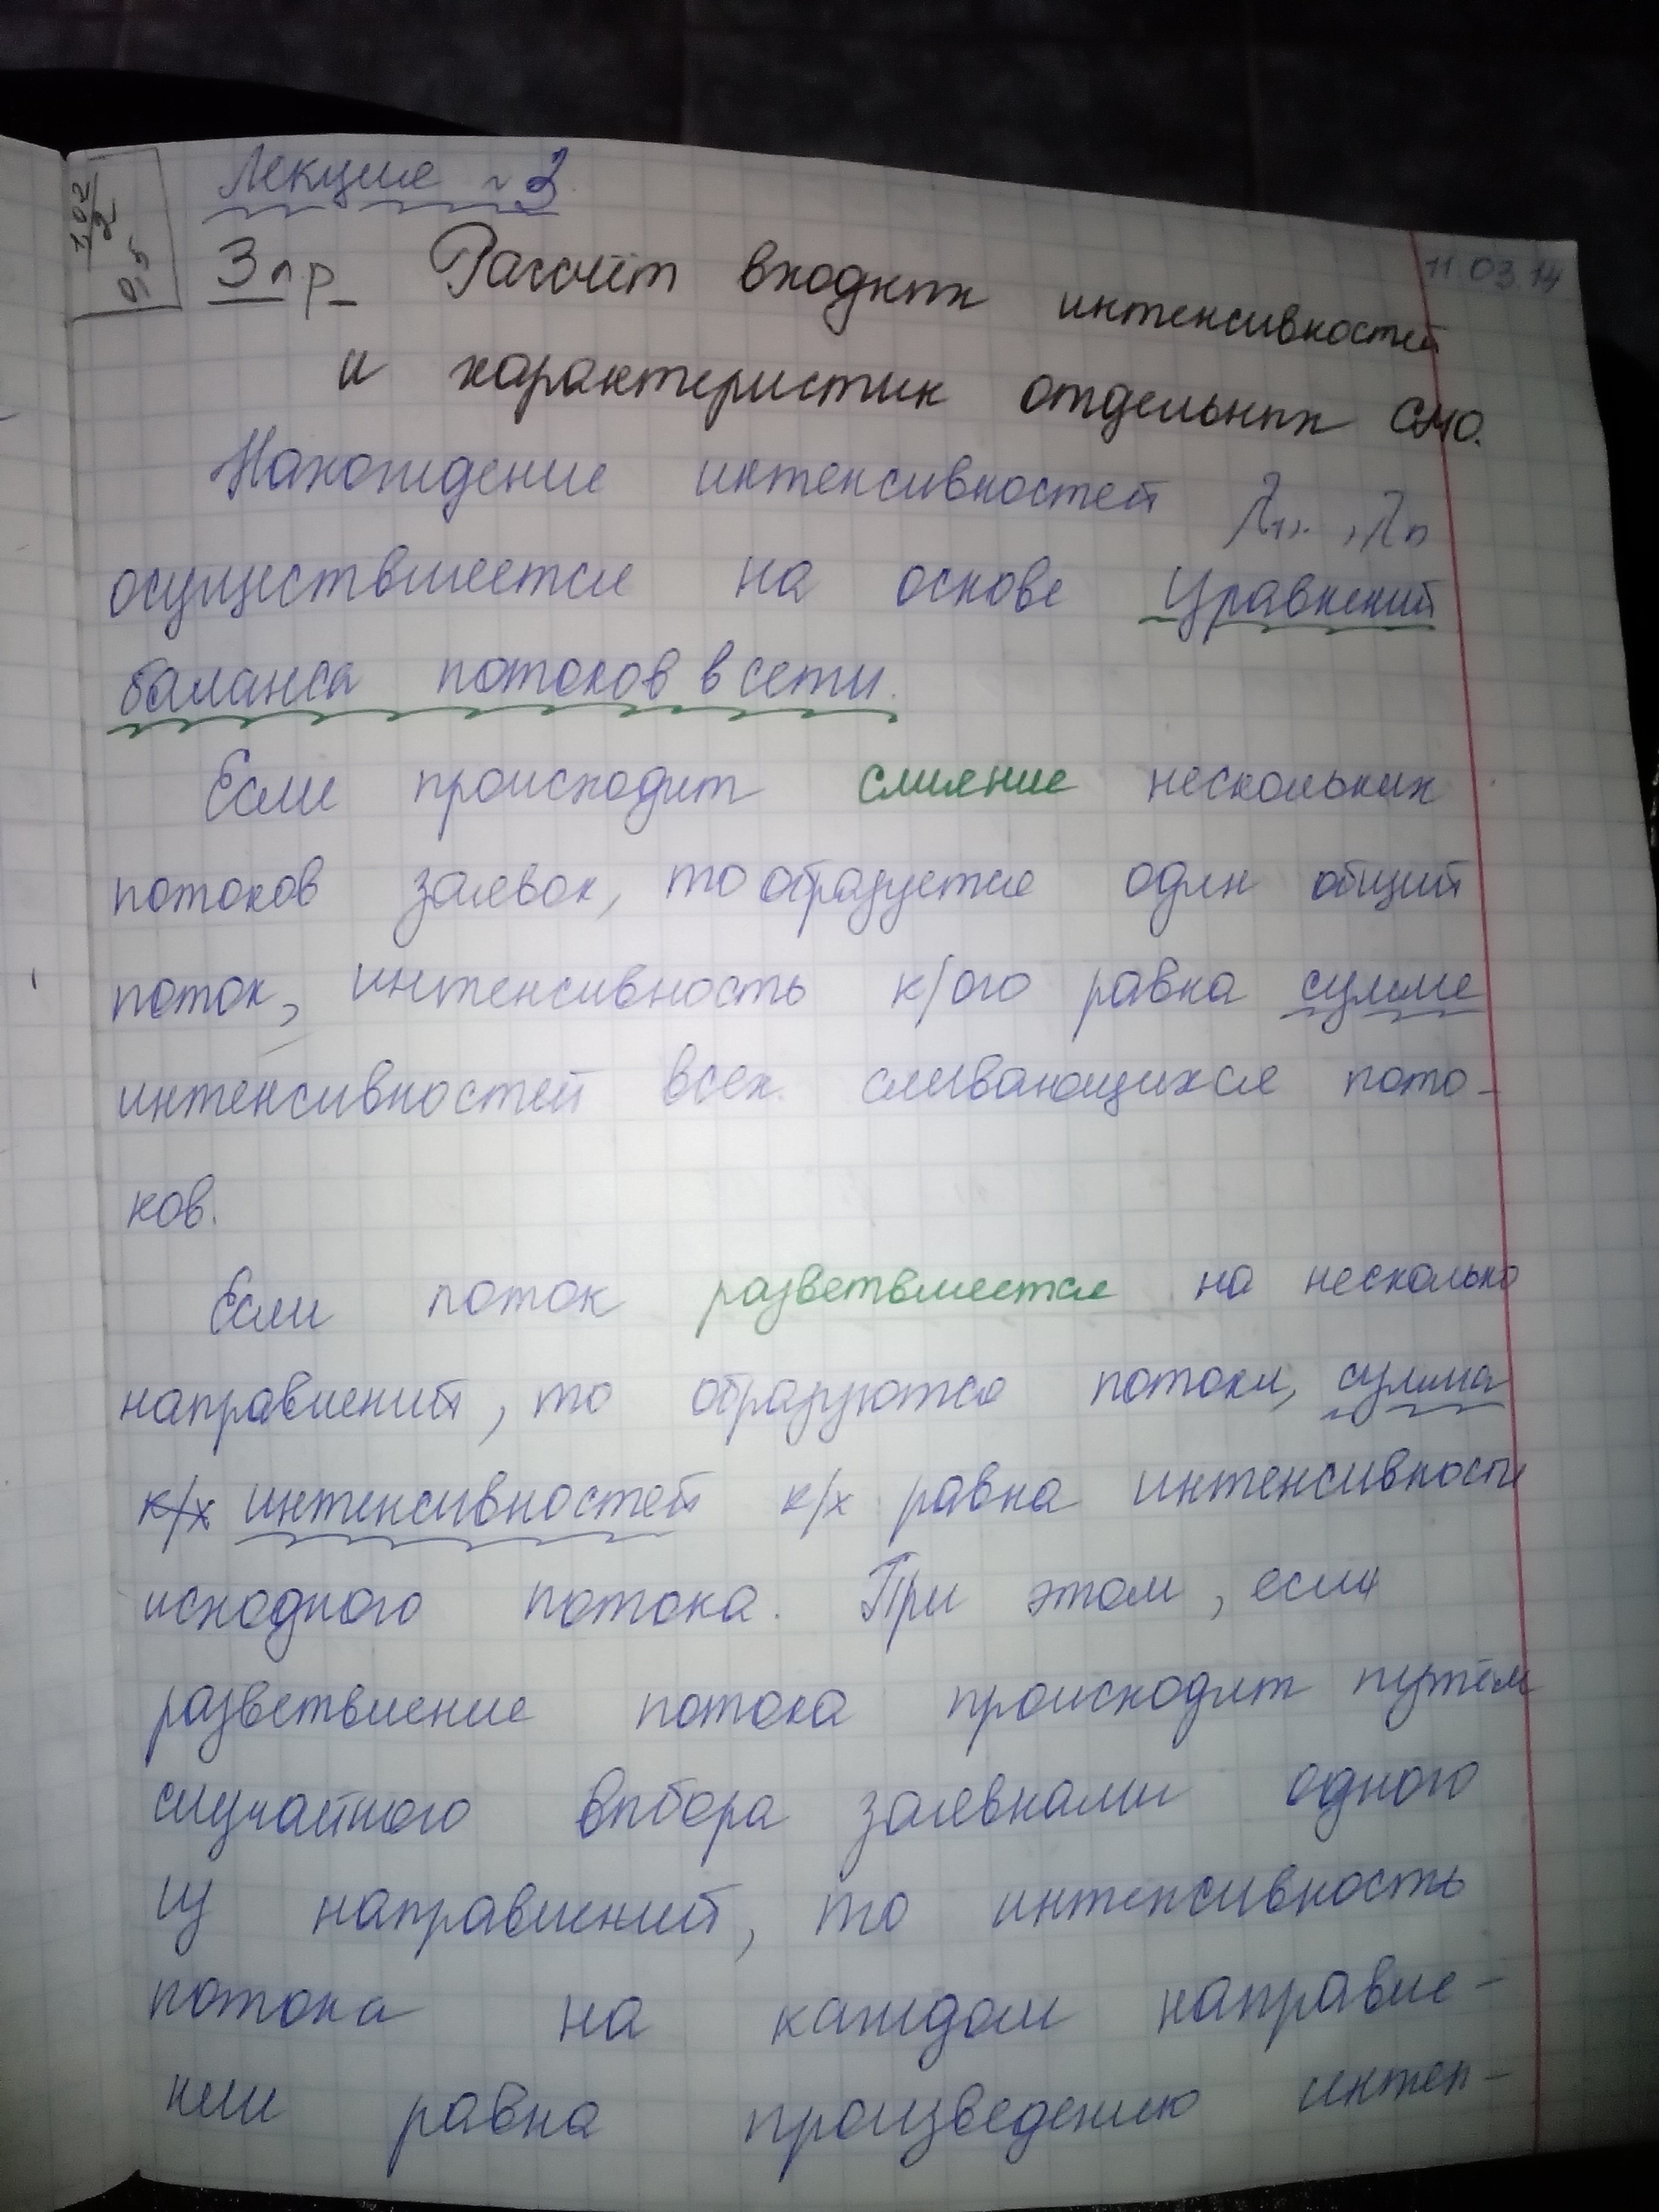 Лекция №3
11.03.14
3 пр. Рассчёт входных интенсивностей
и характеристик отдельных СМО.
Нахождение интенсивностей λ1,..,λn
осуществляется на основе уравнений
баланса потоков в сети.
Если происходит слияние нескольких
потоков заявок, то образуется один общий
поток, интенсивность к/ого равна сумме
интенсивностей всех сливающихся пото-
ков.
Если поток разветвляется на несколько
направлений, то образуются потоки, сумма
к/х интенсивностей к/х равна интенсивности
исходного потока. При этом, если
разветвление потока происходит путём
случайного выбора заявками одного
из направлений, то интенсивность
потока на каждом направле-
нии равна произведению интен-